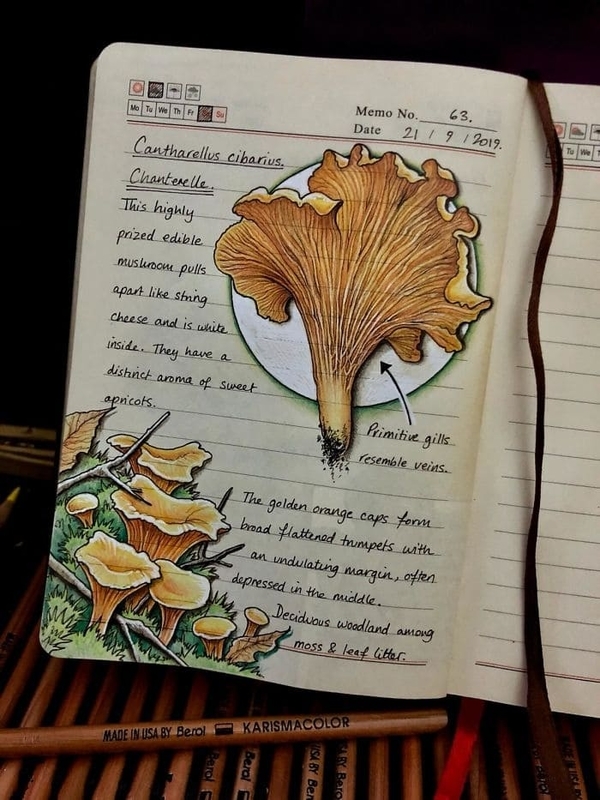 Mo Tu We Th Fr Su
Memo No. 63.
Date 21 / 9 / 2019.
Cantharellus cibarius.
Chanterelle.
This highly
prized edible
mushroom pulls
apart like string
cheese and is white
inside. They have a
distinct aroma of sweet
apricots.
Primitive gills
resemble veins.
The golden orange caps form
broad flattened trumpets with
an undulating margin, often
depressed in the middle.
Deciduous woodland among
moss & leaf litter.
Tu We T
MADE IN USA BY Berol KARISMACOLOR
Berol
Berol
Berol